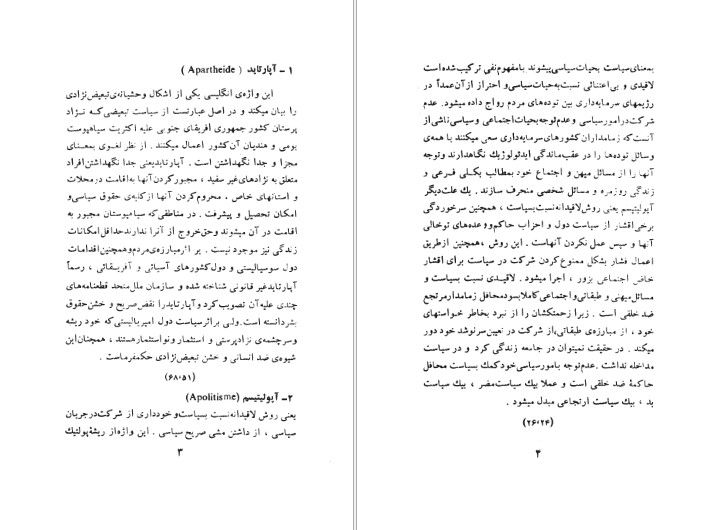 ۱ - آپارتاید ( Apartheide )
این واژه‌ی انگلیسی یکی از اشکال وحشیانه‌ی تبعیض نژادی
را بیان میکند و در اصل عبارتست از سیاست تبعیضی که نژاد
پرستان کشور جمهوری افریقای جنوبی علیه اکثریت سیاهپوست
بومی و هندیان آن کشور اعمال میکنند . از نظر لغوی بمعنای
مجزا و جدا نگهداشتن است . آپارتاید یعنی جدا نگهداشتن افراد
متعلق به نژادهای غیر سفید ، مجبور کردن آنها به اقامت در محلات
و استانهای خاص ، محروم کردن آنها از کلیه‌ی حقوق سیاسی و
امکان تحصیل و پیشرفت . در مناطقی که سیاهپوستان مجبور به
اقامت در آن میشوند وحق خروج از آنرا ندارند حداقل امکانات
زندگی نیز موجود نیست . بر اثر مبارزه‌ی مردم و همچنین اقدامات
دول سوسیالیستی و دول کشورهای آسیائی و آفریقائی ، رسماً
آپارتاید غیر قانونی شناخته شده و سازمان ملل متحد قطعنامه های
چندی علیه آن تصویب کرد و آپارتاید را نقض صریح و خشن حقوق
بشر دانسته است. ولی بر اثر سیاست دول امپریالیستی که خود ریشه
و سرچشمه‌ی نژاد پرستی و استثمار و نواستثمار هستند ، همچنان این
شیوه‌ی ضد انسانی و خشن تبعیض نژادی حکمفرماست .
(۶۸،۵۱)
۲ - آپولیتیسم (Apolitisme)
یعنی روش لاقیدانه نسبت بسیاست و خودداری از شرکت در جریان
سیاسی ، از داشتن مشی صریح سیاسی . این واژه از ریشهٔ پولتیک
۳
بمعنای سیاست بحیات سیاسی پیشوند با مفهوم نفی ترکیب شده است
لاقیدی و بی اعتنائی نسبت به حیات سیاسی و احتراز از آن عمداً در
رژیمهای سرمایه داری بین توده های مردم رواج داده میشود. عدم
شرکت در امور سیاسی و عدم توجه بحیات اجتماعی و سیاسی ناشی از
آنست که زمامداران کشورهای سرمایه داری سعی میکنند با همه‌ی
وسائل توده ها را در عقب ماندگی ایدئولوژیک نگاهدارند و توجه
آنها را از مسائل میهن و اجتماع خود بمطالب بکلی فرعی و
زندگی روزمره و مسائل شخصی منحرف سازند . یک علت دیگر
آپولیتیسم یعنی روش لاقیدانه نسبت بسیاست ، همچنین سرخوردگی
برخی اقشار از سیاست دول و احزاب حاکم و وعده های توخالی
آنها و سپس عمل نکردن آنهاست . این روش ، همچنین از طریق
اعمال فشار بشکل ممنوع کردن شرکت در سیاست برای اقشار
خاص اجتماعی بزور ، اجرا میشود . لاقیدی نسبت بسیاست و
مسائل میهنی و طبقاتی و اجتماعی کاملا بسود محافل زمامدار مرتجع
ضد خلقی است . زیرا زحمتکشان را از نبرد بخاطر خواستهای
خود ، از مبارزه‌ی طبقاتی ، از شرکت در تعیین سرنوشت خود دور
میکند . در حقیقت نمیتوان در جامعه زندگی کرد و در سیاست
مداخله نداشت. عدم توجه بامور سیاسی خود کمک بسیاست محافل
حاکمهٔ ضد خلقی است و عملا بیک سیاست مضر ، بیک سیاست
بد ، بیک سیاست ارتجاعی مبدل میشود .
(۲۶،۲۴)
۴